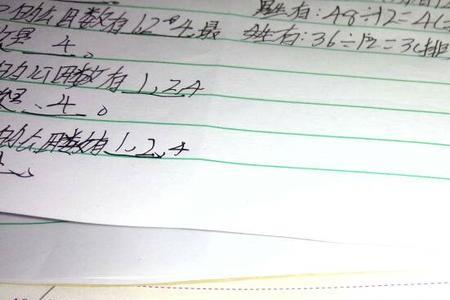 的公因数有1,2和4,最
男生有:48÷12=4(排
是 4。
女生有:36÷12=3(排
的公因数有 1,2,4
是 4。
的公因数有1,2,4